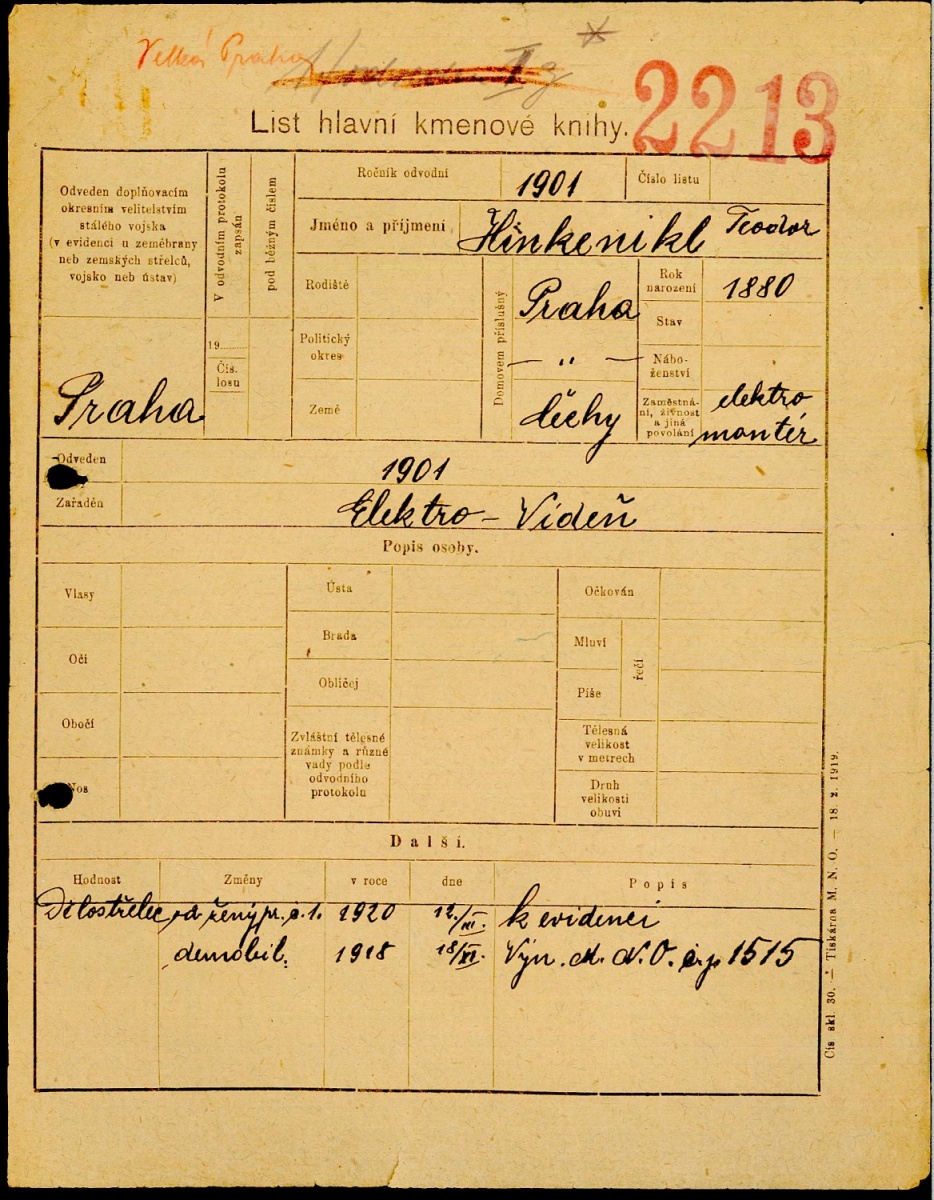 Velká Praha
List hlavní kmenové knihy.
2213
Odveden doplňovacím
okresním velitelstvím
stálého vojska
(v evidenci u zeměbrany
neb zemských střelců,
vojsko neb ústav)
Praha
V odvodním protokolu
zapsán
pod běžným číslem
19
Čís.
losu
Ročník odvodní
1901
Číslo listu
Jméno a příjmení
Hinkenikl Teodor
Rodiště
Politický
okres
Země
Domovem příslušný
Praha
— „ —
Čechy
Rok
narození
1880
Stav
Nábo-
ženství
Zaměstná-
ní, živnost
a jiná
povolání
elektro
montér
Odveden
1901
Zařaděn
Elektro – Vídeň
Popis osoby.
Vlasy
Oči
Obočí
Nos
Ústa
Brada
Obličej
Zvláštní tělesné
známky a různé
vady podle
odvodního
protokolu
Očkován
Mluví
Píše
řečí
Tělesná
velikost
v metrech
Druh
velikosti
obuvi
Další.
Hodnost Změny v roce dne Popis
Dělostřelec 1920 12./XI. k evidenci
demobil. 1918 18/XI. Výn. M. N. O. 1515
Čís skl. 30. — Tiskárna M. N. O. — 18. 2. 1919.